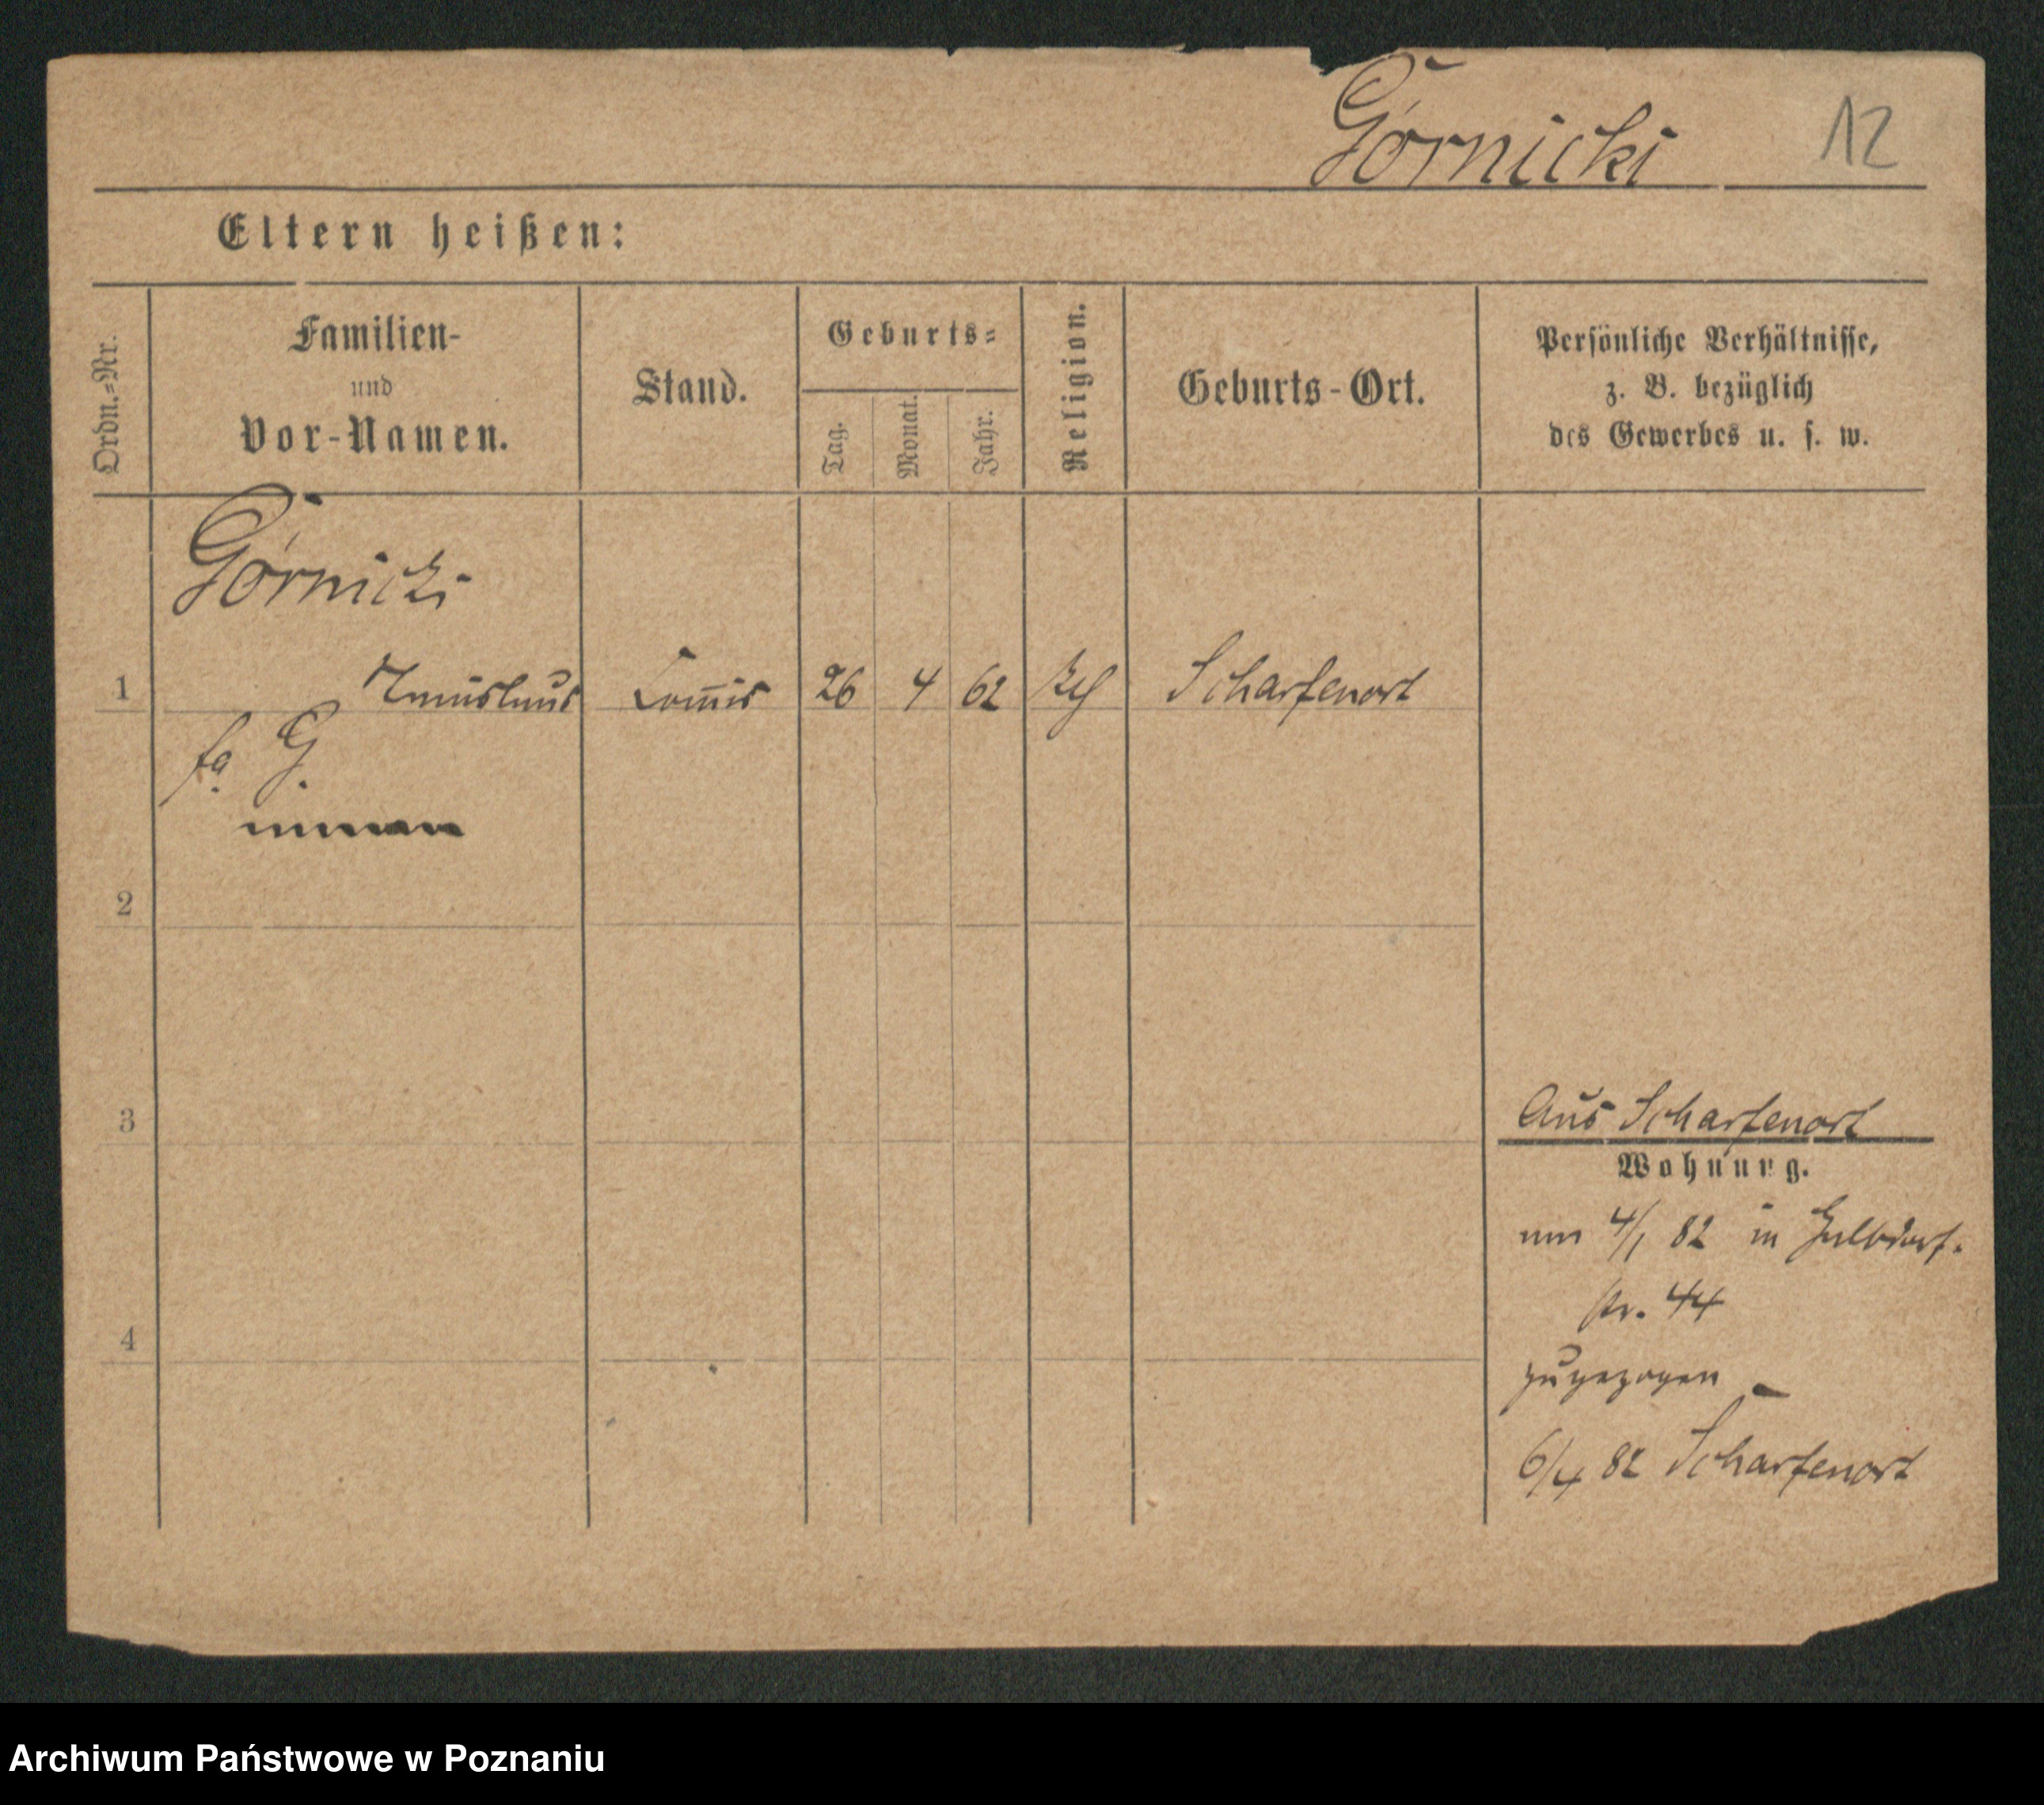 Górnicki 12
Eltern heißen:
Ordn.-Nr.
Familien-
und
Vor-Namen.
Stand.
Geburts-
Tag.
Monat.
Jahr.
Religion.
Geburts-Ort.
Persönliche Verhältnisse,
z. B. bezüglich
des Gewerbes u. s. w.
Górnicki
1 Stanislaus Comis 26 4 62 kth Scharfenort
G.
2
3
Aus Scharfenort
Wohnung.
am 4/1 82 in Halbdorf-
str. 44
4
zugezogen
6/4 82 Scharfenort
Archiwum Państwowe w Poznaniu